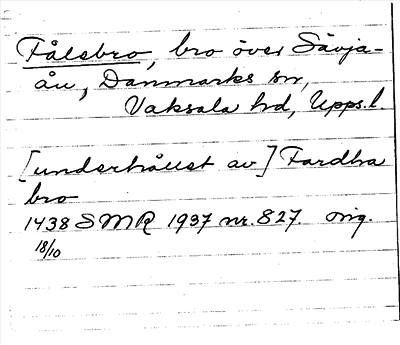 Fålebro, bro över Sävja-
ån, Danmarks sn,
Vaksala hd, Upps. l.
[underhållet av] Fardha
bro
1438 SMR 1937 nr. 827. orig.
18/10